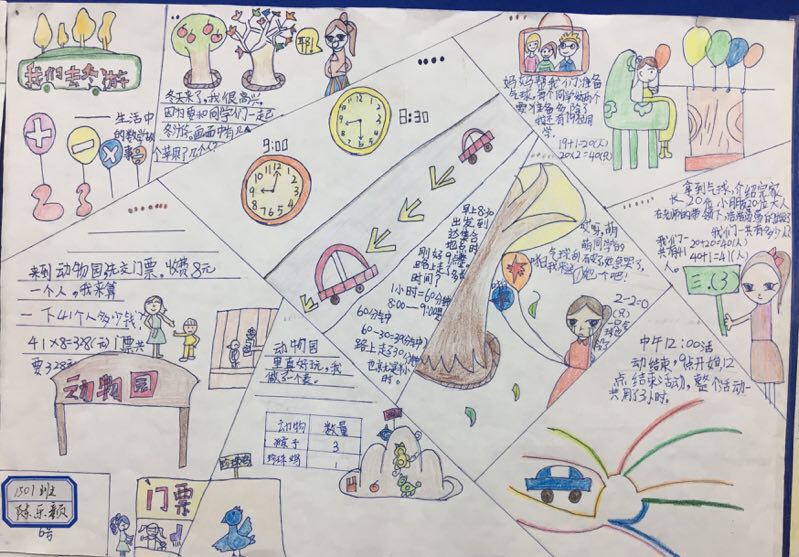 我们去冬游
生活中
的数学故
事
+
-
×
÷
2
3
冬天来了，我很高兴，
因为要和同学们一起
冬游。画面中有几
个苹果了几个
耶！
8:30
9:00
早上8:30
出发到
达集合
地点时
刚好9点整
路上走了多长
时间？
1小时=60分钟
8:00—9:00是
60分钟
60-30=30(分钟)
路上走了30分钟
也就是半小
时。
妈妈帮我们准备
气球，每个同学两个
要准备多少？除了
我还有19位同
学。
19+1=20(人)
20×2=40(只)
拿到气球，介绍完家
长，20位小朋友20位大人
在老师的带领下，
我们一共有多少人
我们一20+20=40(人)
共有41 40+1=41(人)
人。
三.(3)
哎呀，萌
萌同学的
气球
2-2=0
(只)
中午12：00活
动结束，9点开始12
点结束活动，整个活动一
共用了3小时。
来到动物园先交门票，收费8元
一个人，我来算
一下41个人多少钱？
41×8=328(元)门票共
要328元
动物园
动物园
里真好玩，我
做了一个表。
动物 数量
猴子 3
珍珠鸡 1
珍珠鸡
门票
1301班
陈乐颖
6号